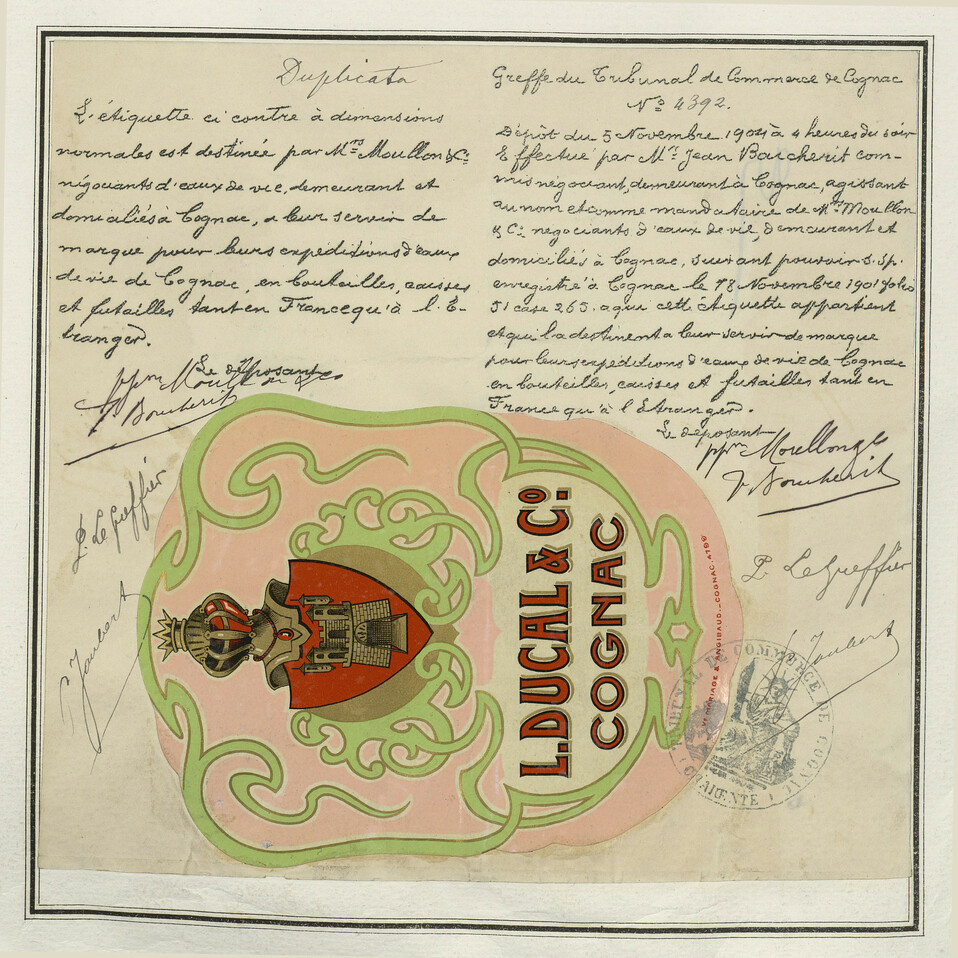 Duplicata
L'étiquette ci contre à dimensions
normales est destinée par Mrs Moullon & Cie
négociants d'eaux de vie, demeurant et
domiciliés à Cognac, a leur servir de
marque pour leurs expéditions d'eaux
de vie de Cognac, en bouteilles, caisses
et futailles tant en France qu'à l'E-
tranger.
Le déposant
ppon Moullon & Co
J. Boucherit
P. Le Greffier
Joubert
Greffe du Tribunal de Commerce de Cognac
No 4392.
Dépôt du 5 Novembre 1904 à 4 heures du soir
Effectué par Mr Jean Boucherit com-
mis négociant, demeurant à Cognac, agissant
au nom et comme mandataire de Mrs Moullon
& Cie negociants d'eaux de vie, demeurant et
domiciliés à Cognac, suivant pouvoir s.sp.
enregistré à Cognac le 18 Novembre 1901 folio
51 case 265. a qui cette étiquette appartient
et qui la destinent a leur servir de marque
pour leurs expéditions d'eaux de vie de Cognac
en bouteilles, caisses et futailles tant en
France qu'à l'Etranger.
Le déposant
ppon Moullon & Co
J. Boucherit
P. Le Greffier
Joubert
L. DUCAL & Co.
COGNAC
Vve MARIAGE & ANGIBAUD._COGNAC_4789
TRIBUNAL DE COMMERCE DE COGNAC
(CHARENTE)